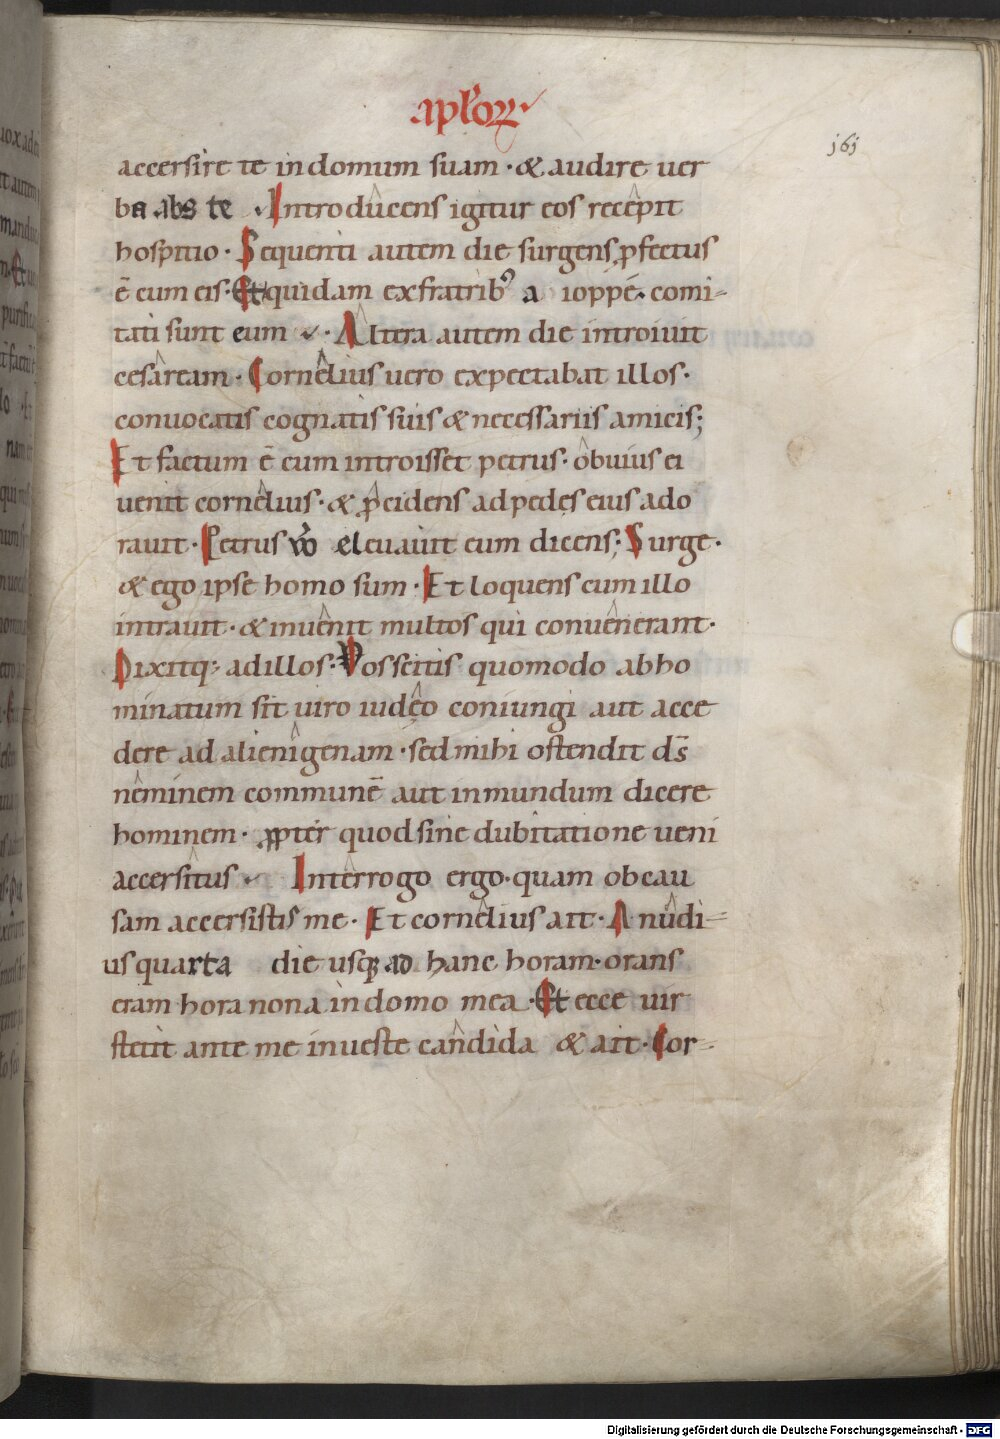 apl'oꝝ
j6j
accersire te in domum suam · & audire uer
ba abs te . Introducens igitur eos recepit
hospitio · Sequenti autem die surgens ꝓfectus
ē cum eis · Et quidam ex fratrib' a ioppe · comi-
tati sunt eum . Altera autem die introiuit
cesaream · Cornelius uero expectabat illos ·
conuocatis cognatis suis & necessariis amicis;
Et factum ē cum introisset petrus · obuius ei
uenit cornelius · & p̄cidens ad pedes eius ado
rauit · Petrus v̊o eleuauit eum dicens; Surge ·
& ego ipse homo sum · Et loquens cum illo
intrauit · & inuenit multos qui conuenerant ·
Dixitq; ad illos · Vos scitis quomodo abho
minatum sit uiro iudeo coniungi aut acce
dere ad alienigenam · sed mihi ostendit ds̄
neminem communē aut inmundum dicere
hominem · ꝓpter quod sine dubitatione ueni
accersitus . Interrogo ergo · quam ob cau
sam accersistis me · Et cornelius ait · A nudi-
us quarta die usq; ad hanc horam · orans
eram hora nona in domo mea · Et ecce uir
stetit ante me in ueste candida & ait · Cor-
Digitalisierung gefördert durch die Deutsche Forschungsgemeinschaft - DFG